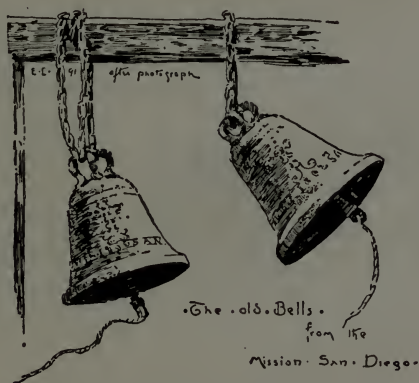 E.E. 91 after photograph
·The·old·Bells·
from the
Mission·San·Diego·